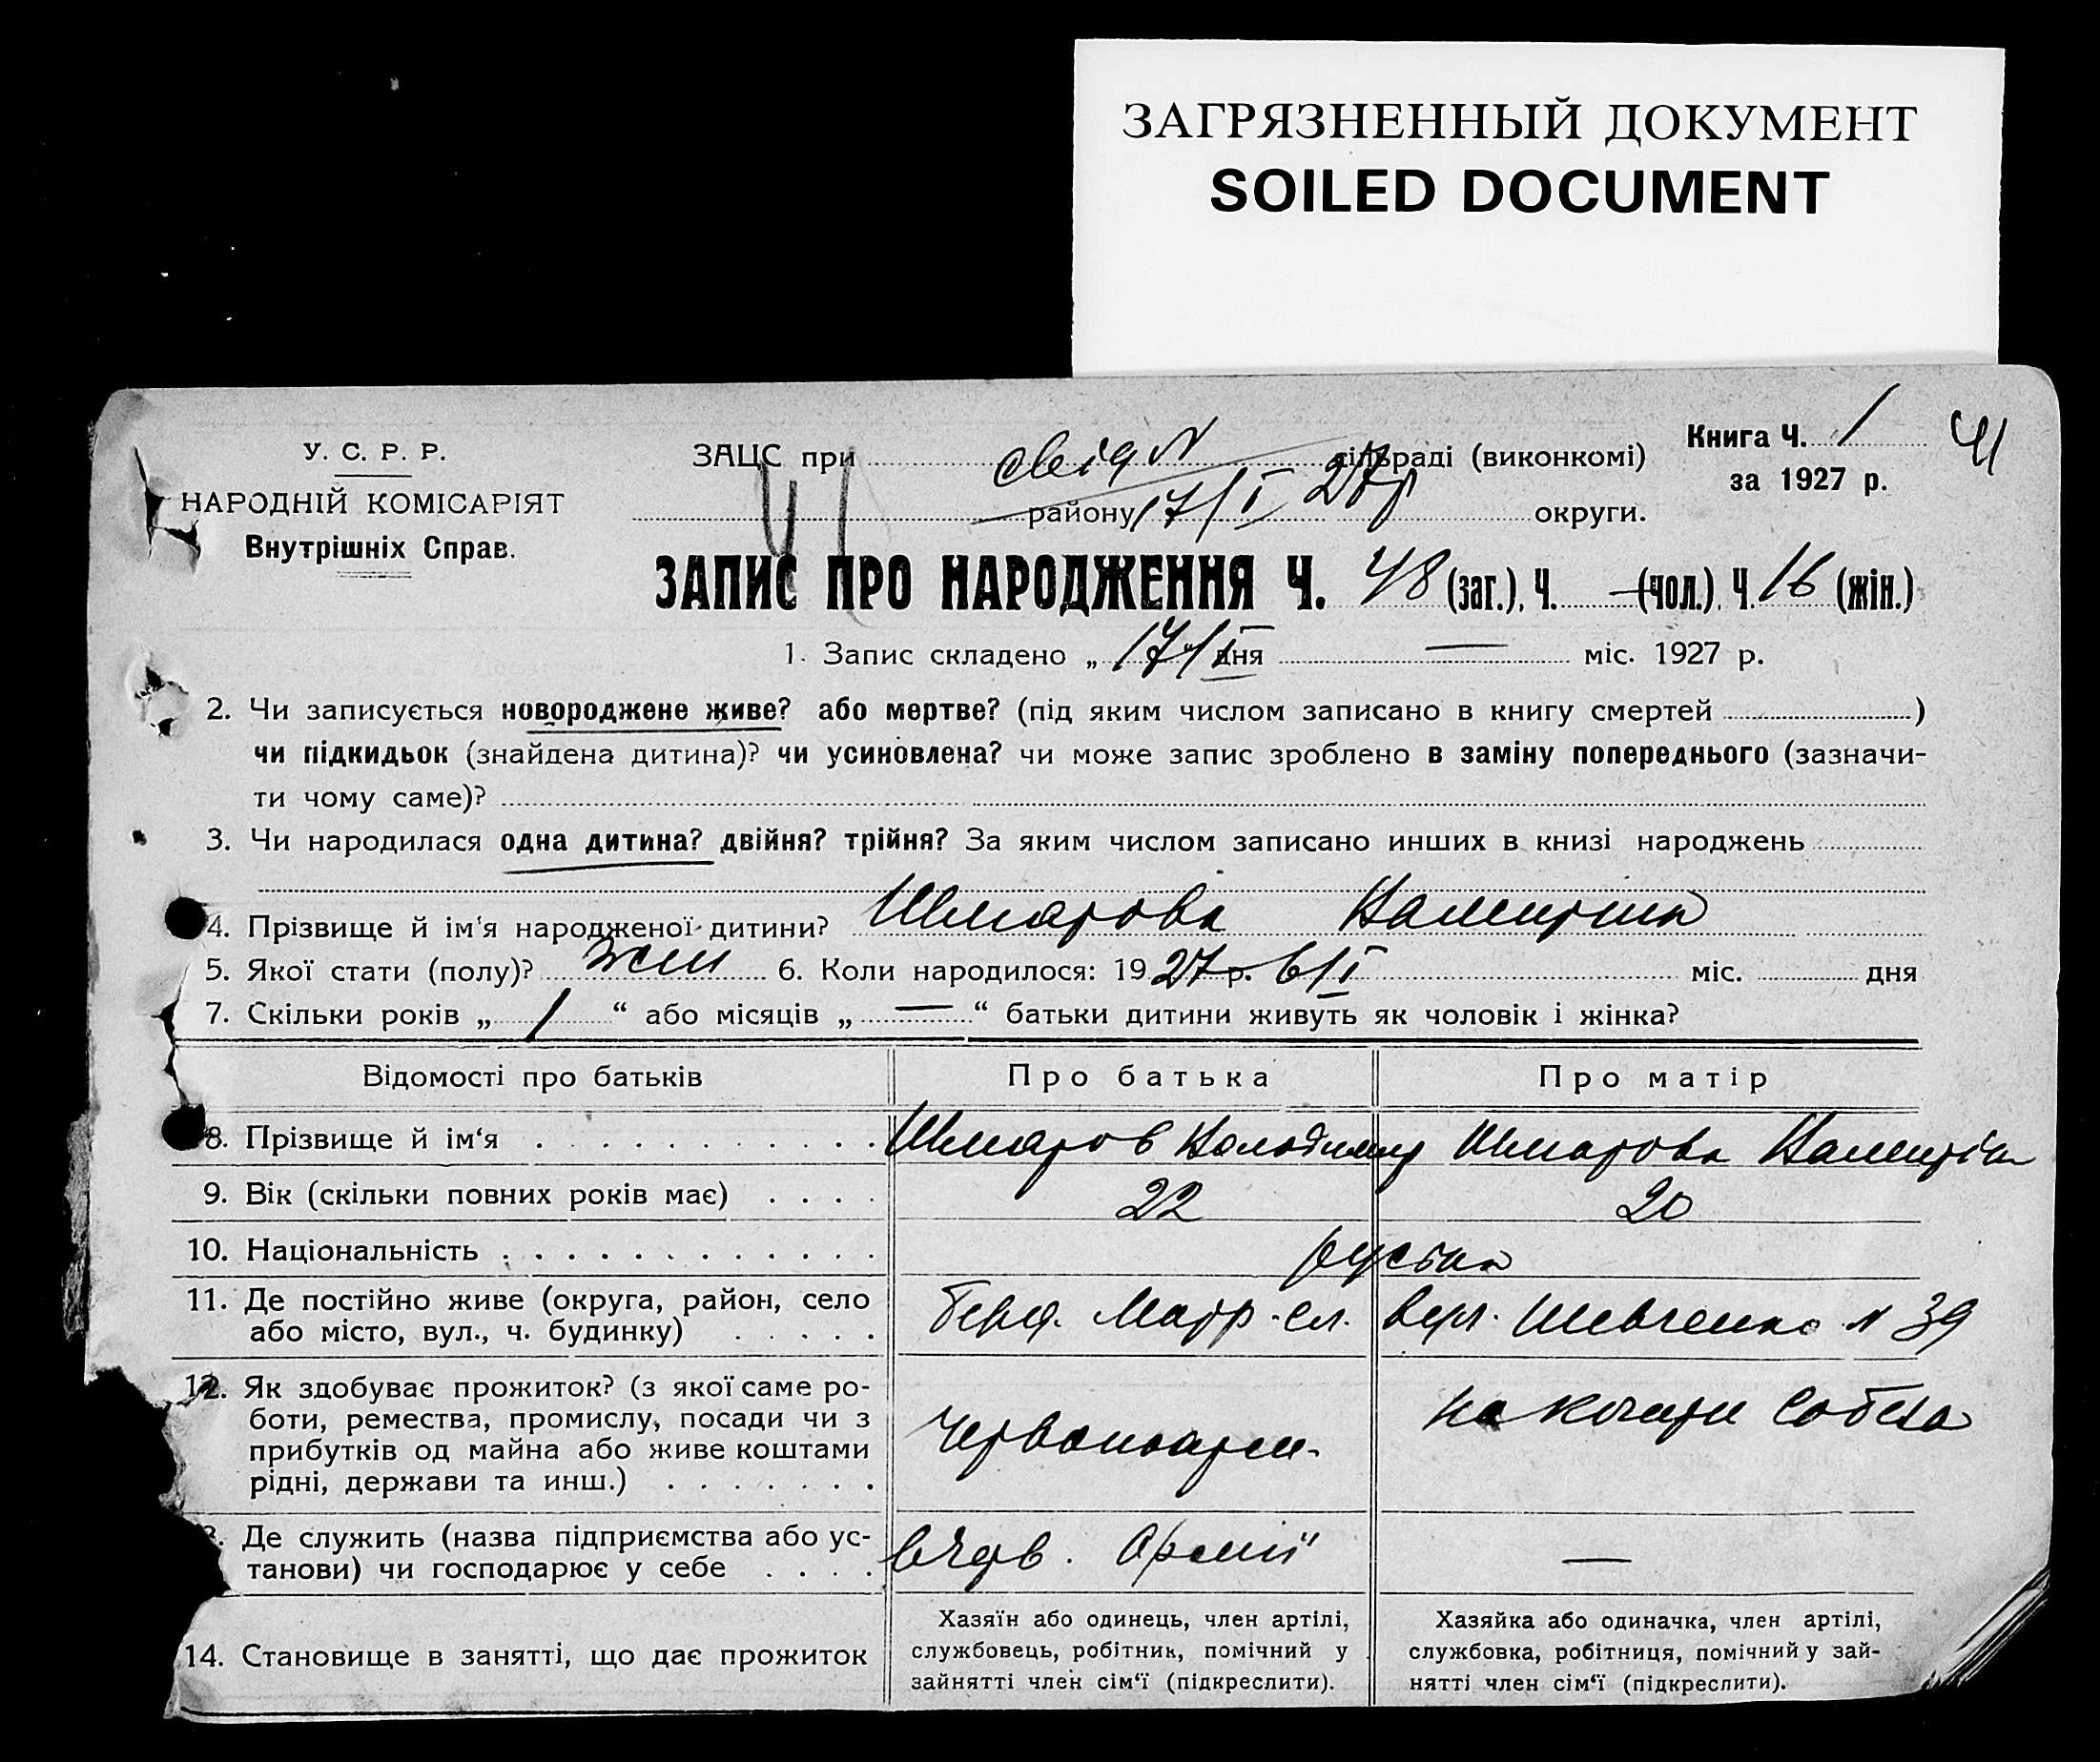 ЗАГРЯЗНЕННЫЙ ДОКУМЕНТ
SOILED DOCUMENT
У. С. Р. Р.
НАРОДНІЙ КОМІСАРІЯТ
Внутрішніх Справ.
ЗАЦС при свід N сільраді (виконкомі)
району 17/I 27 р округи.
Книга Ч. 1
за 1927 р.
41
41
ЗАПИС ПРО НАРОДЖЕННЯ Ч. 48 (заг.), Ч. — (чол.), Ч. 16 (жін.)
1. Запис складено „ 17/I дня — міс. 1927 р.
2. Чи записується новороджене живе? або мертве? (під яким числом записано в книгу смертей )
чи підкидьок (знайдена дитина)? чи усиновлена? чи може запис зроблено в заміну попереднього (зазначи-
ти чому саме)?
3. Чи народилася одна дитина? двійня? трійня? За яким числом записано инших в книзі народжень
4. Прізвище й ім'я народженої дитини? Шмарова
5. Якої стати (полу)? жін 6. Коли народилося: 1927 р. 6/I міс. дня
7. Скільки років „ 1 “ або місяців „ — “ батьки дитини живуть як чоловік і жінка?
Відомості про батьків
Про батька
Про матір
8. Прізвище й ім‘я Шмаров Володимир Шмарова
9. Вік (скільки повних років має) 22 20
10. Національність руськи
11. Де постійно живе (округа, район, село
або місто, вул., ч. будинку)
вул. Шевченко N 39
12. Як здобуває прожиток? (з якої саме ро-
боти, ремества, промислу, посади чи з
прибутків од майна або живе коштами
рідні, держави та инш.)
Червоноарм.
на кошти
13. Де служить (назва підприємства або ус-
танови) чи господарює у себе
в Черв. Армії
—
14. Становище в занятті, що дає прожиток
Хазяїн або одинець, член артілі,
службовець, робітник, помічний у
зайнятті член сім‘ї (підкреслити).
Хазяйка або одиначка, член артілі,
службовка, робітниця, помічний у зай-
нятті член сім‘ї (підкреслити).